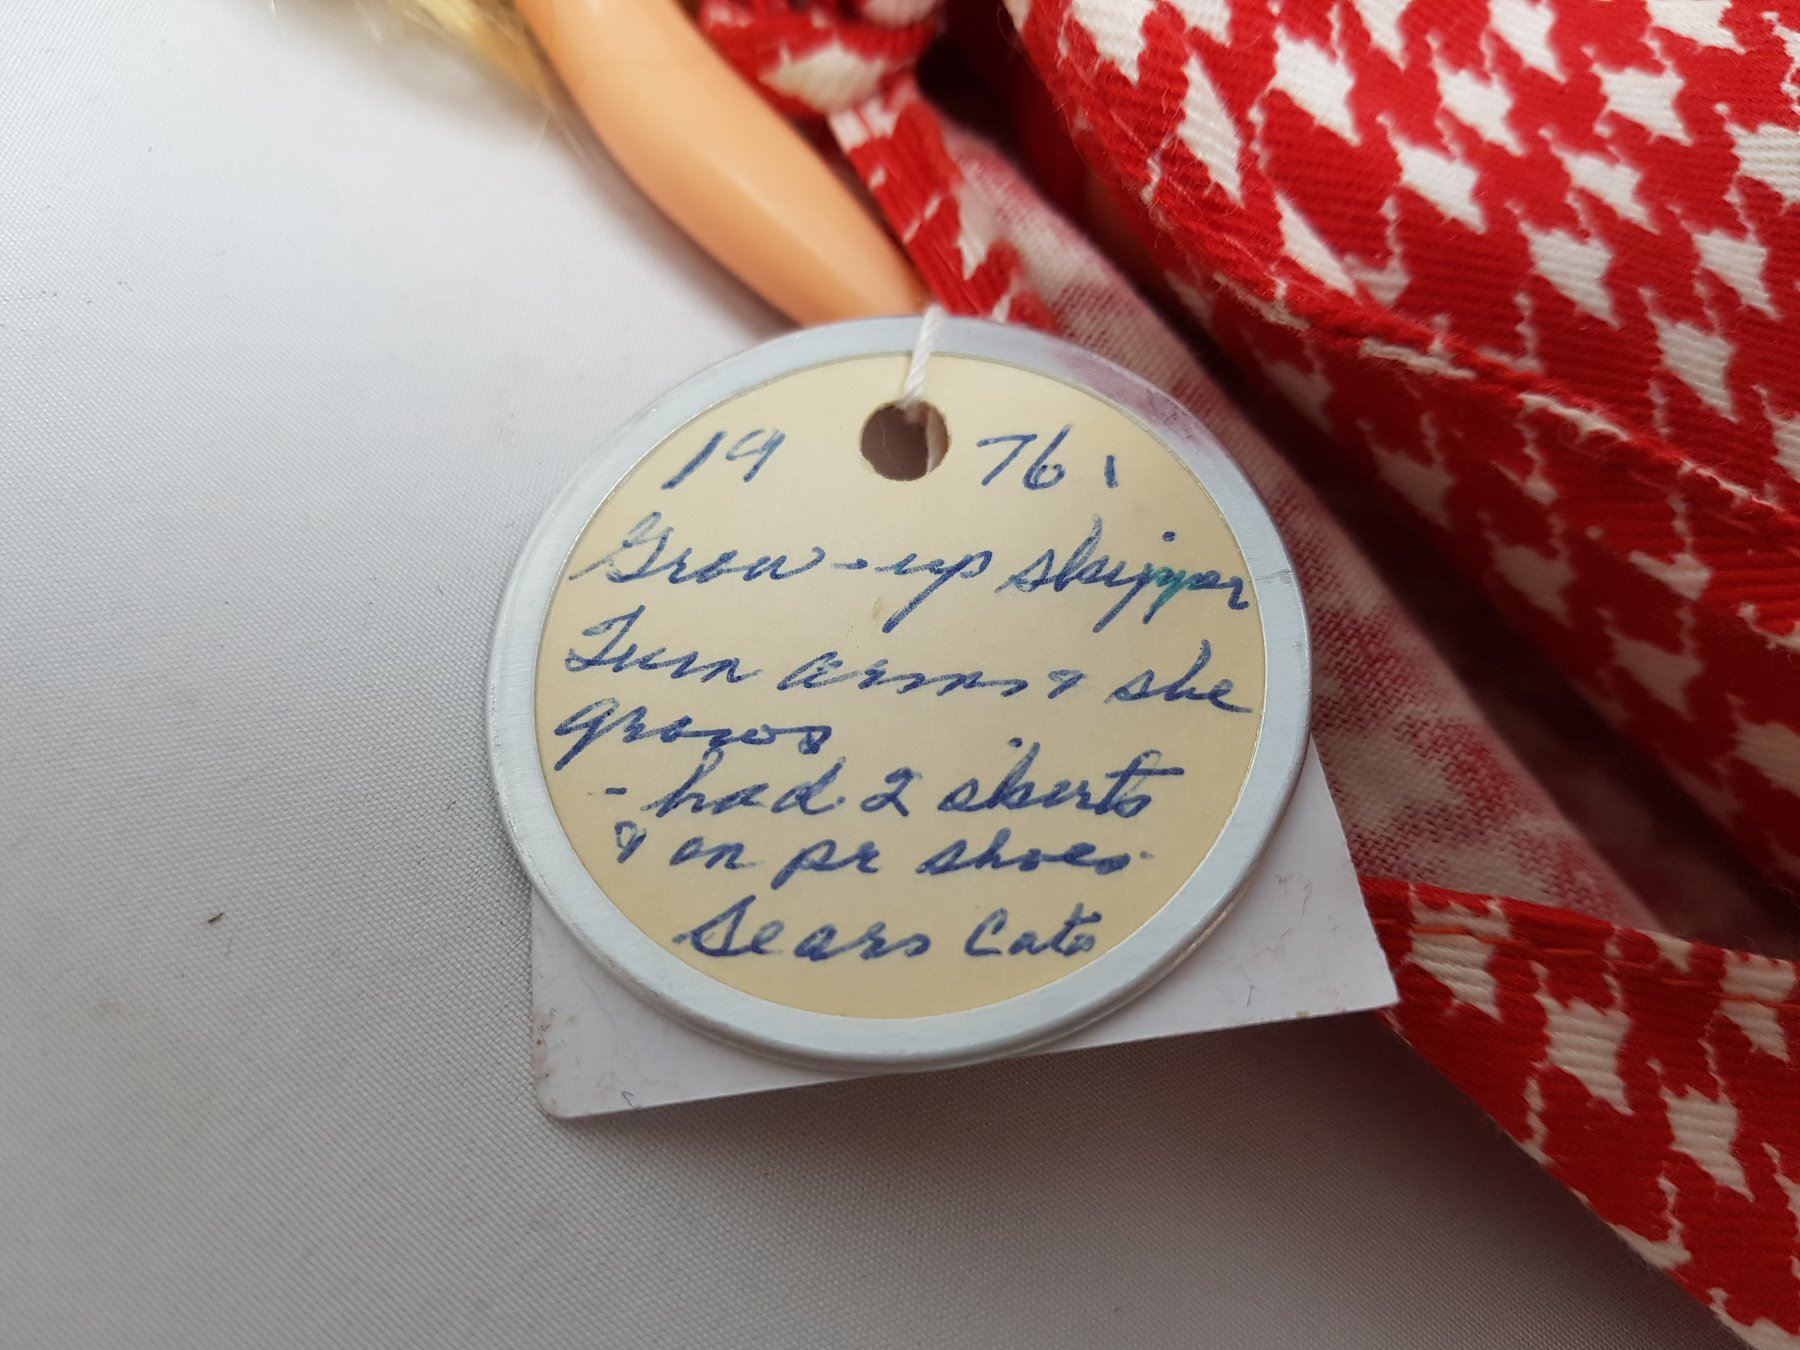 19 76,
Grow-up skipper
Turn arms & she
grows
- had 2 skirts
& on pr shoes
Sears Cato